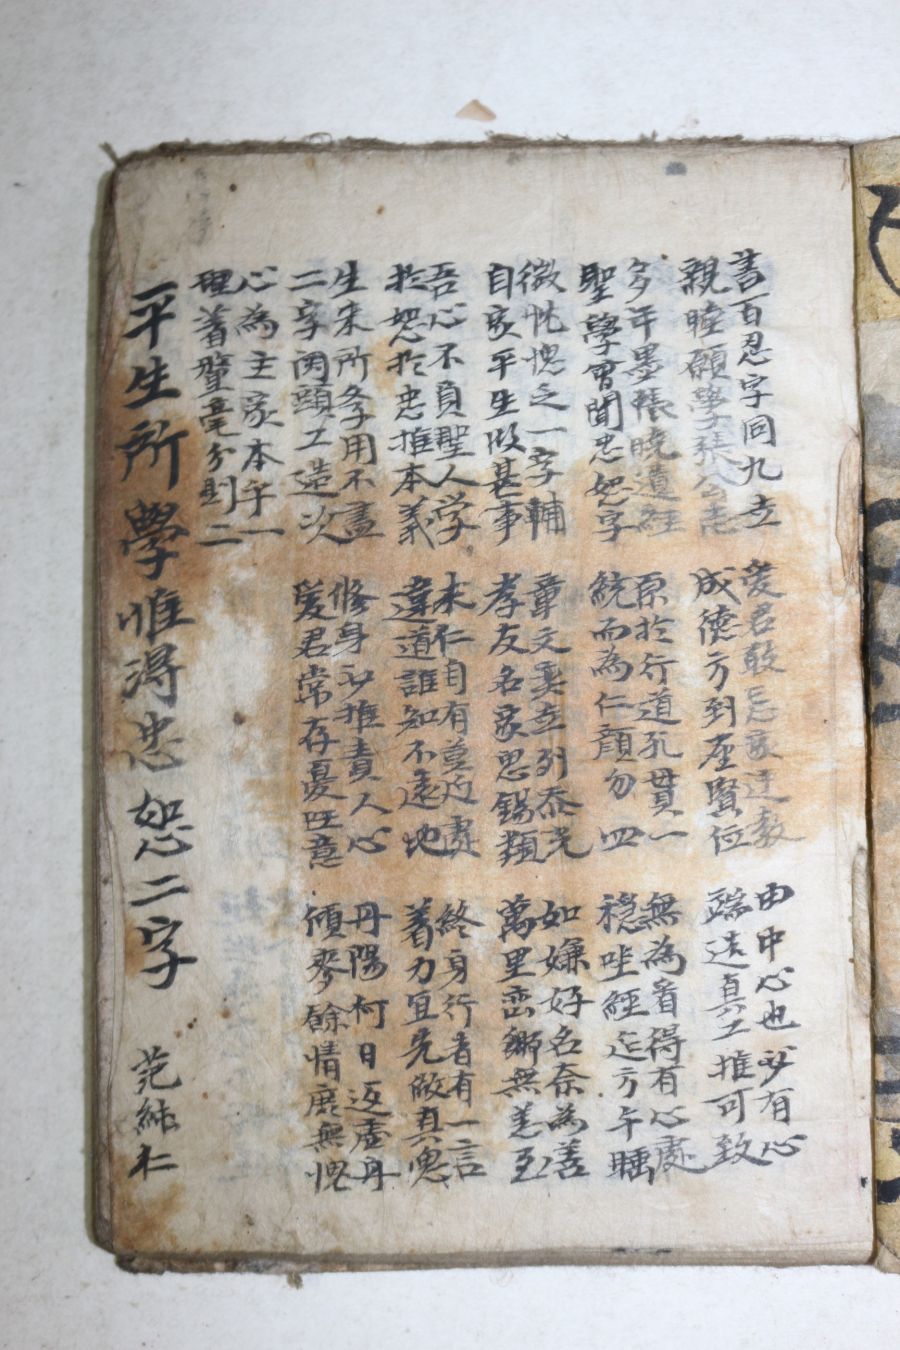 書百忍字同九立
親睦願學張公老
多年墨帳曉遺経
聖學曾聞忠恕字
微忱愧乏一字輔
自家平生做甚事
吾心不負聖人学
於恕於忠推本義
生来所務用不盡
二字頭工造次
心為主家本乎一
理著毫分則二
爱君敢忘家教
成德方到座賢位
原於行道孔貫一
統而為仁顔勿四
章文奕立列泰
孝友名家思錫類
未仁自有莫近處
違道誰知不遠地
修身必推責人心
爱君常存憂意
由中心也必有心
端造真工推可致
無為着得有心處
穏経方午睡
如嫌好名奈為善
萬里鄉無恙至
終身行者有一言
着力宜先做真
丹陽何日返丹
傾麥餘情庶無愧
平生所學惟得忠恕二字 范純仁